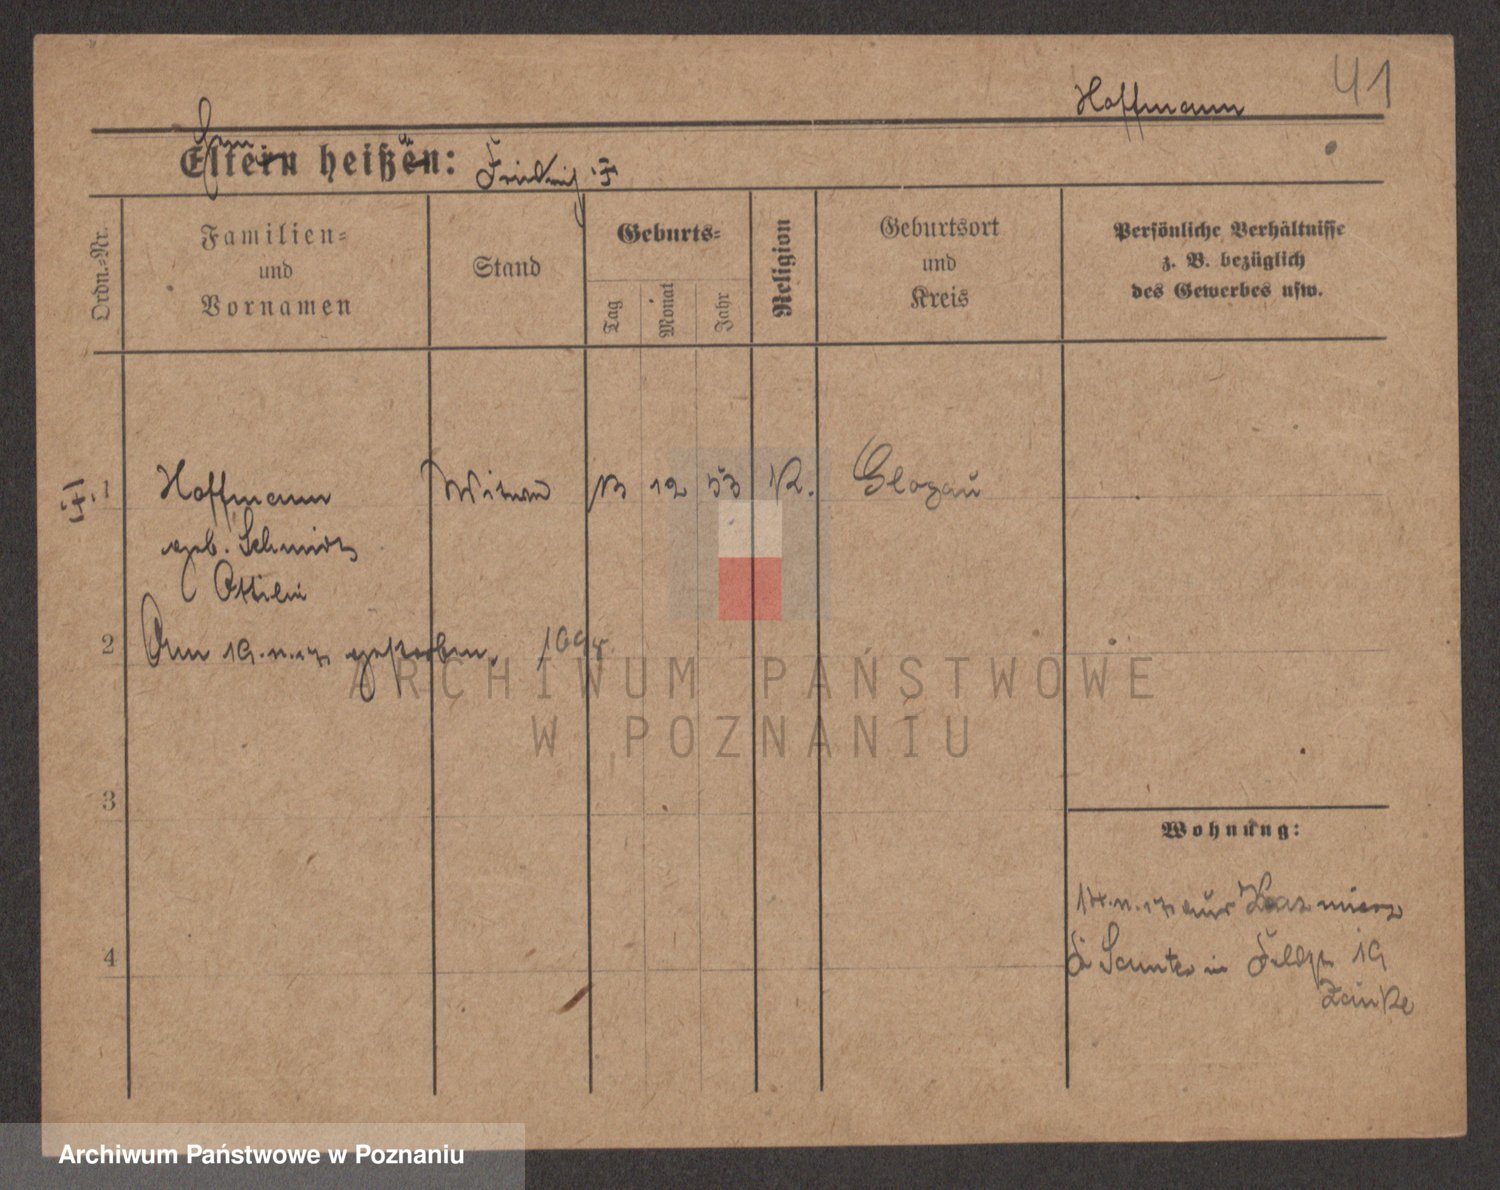 41
Hoffmann
Eltern heißen: Friedrich †
Ordn.-Nr.
Familien-
und
Vornamen
Stand
Geburts-
Tag
Monat
Jahr
Religion
Geburtsort
und
Kreis
Persönliche Verhältnisse
z. B. bezüglich
des Gewerbes usw.
1 Hoffmann Witwe 13 12 53 K. Glogau
geb. Schmidt
Ottilie
2 Am gestorben.
3
Wohnung:
aus Kazmierz
4 Samter in 19
ARCHIWUM PAŃSTWOWE
W POZNANIU
Archiwum Państwowe w Poznaniu